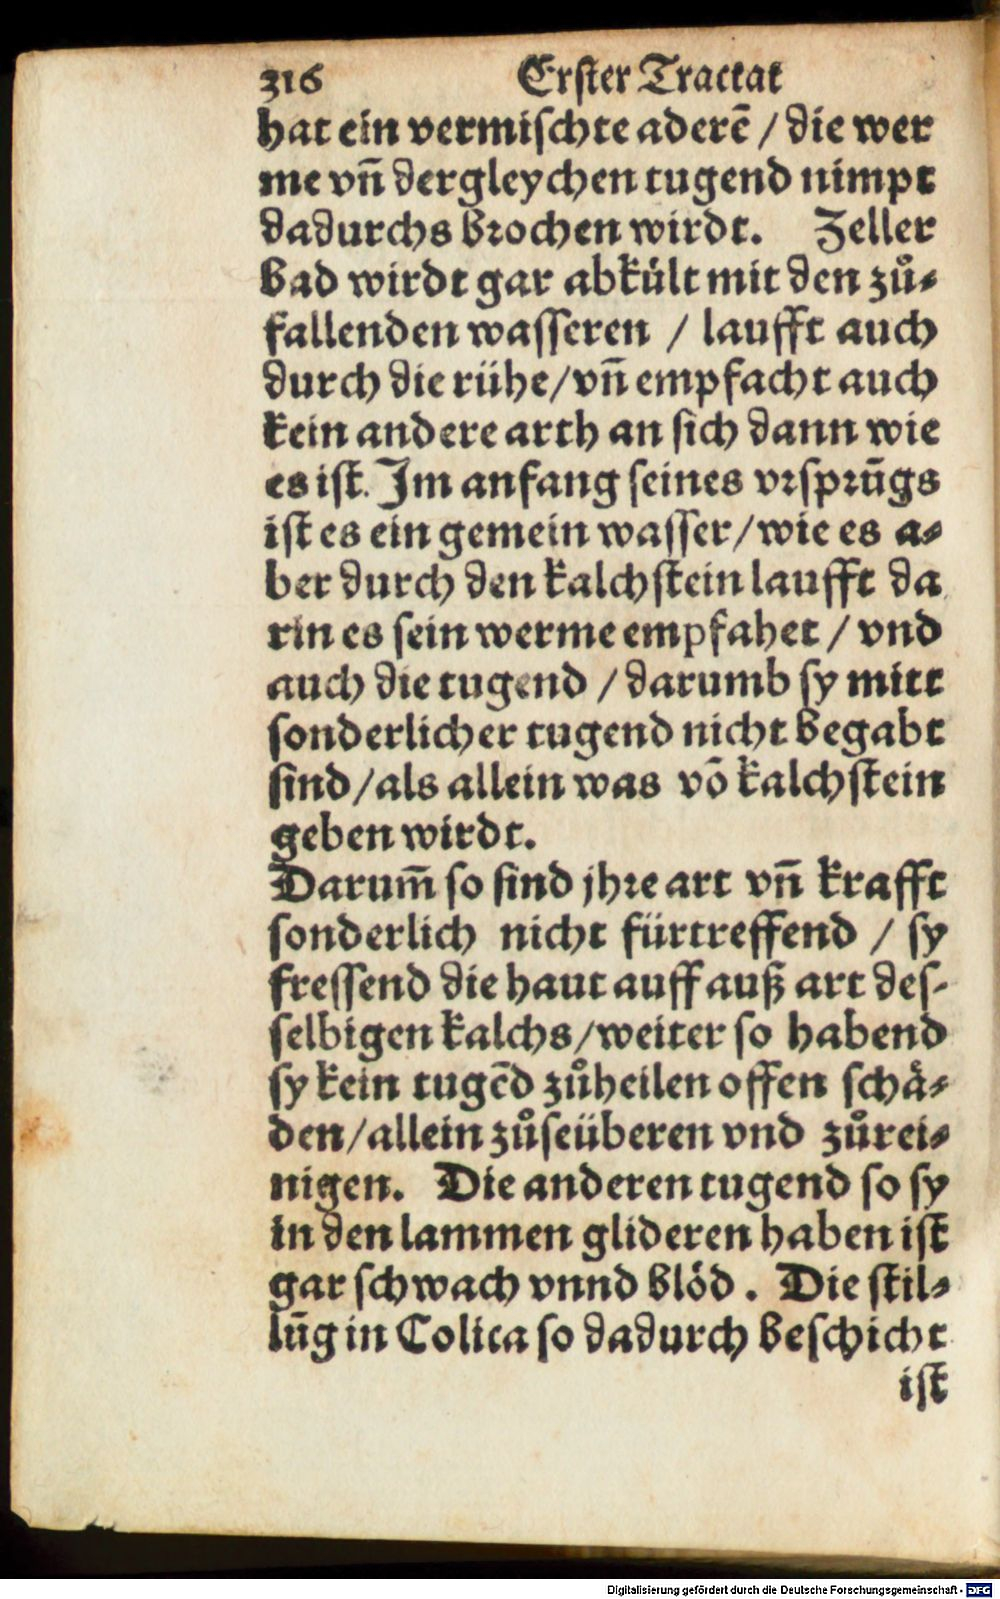 316 Erster Tractat
hat ein vermischte aderē / die wer
me vn̄ dergleychen tugend nimpt
dadurchs brochen wirdt. Zeller
bad wirdt gar abkůlt mit den zů⸗
fallenden wasseren / laufft auch
durch die rühe/vn̄ empfacht auch
kein andere arth an sich dann wie
es ist. Im anfang seines vrsprūgs
ist es ein gemein wasser/wie es a⸗
ber durch den kalchstein laufft da
rin es sein werme empfahet / vnd
auch die tugend / darumb sy mitt
sonderlicher tugend nicht begabt
sind/als allein was vō kalchstein
geben wirdt.
Darum̄ so sind jhre art vn̄ krafft
sonderlich nicht fürtreffend / sy
fressend die haut auff auß art des-
selbigen kalchs/weiter so habend
sy kein tugēd zůheilen offen schå⸗
den/allein zůseüberen vnd zůrei⸗
nigen. Die anderen tugend so sy
in den lammen glideren haben ist
gar schwach vnnd blöd. Die stil⸗
lūg in Colica so dadurch beschicht
ist
Digitalisierung gefördert durch die Deutsche Forschungsgemeinschaft - DFG